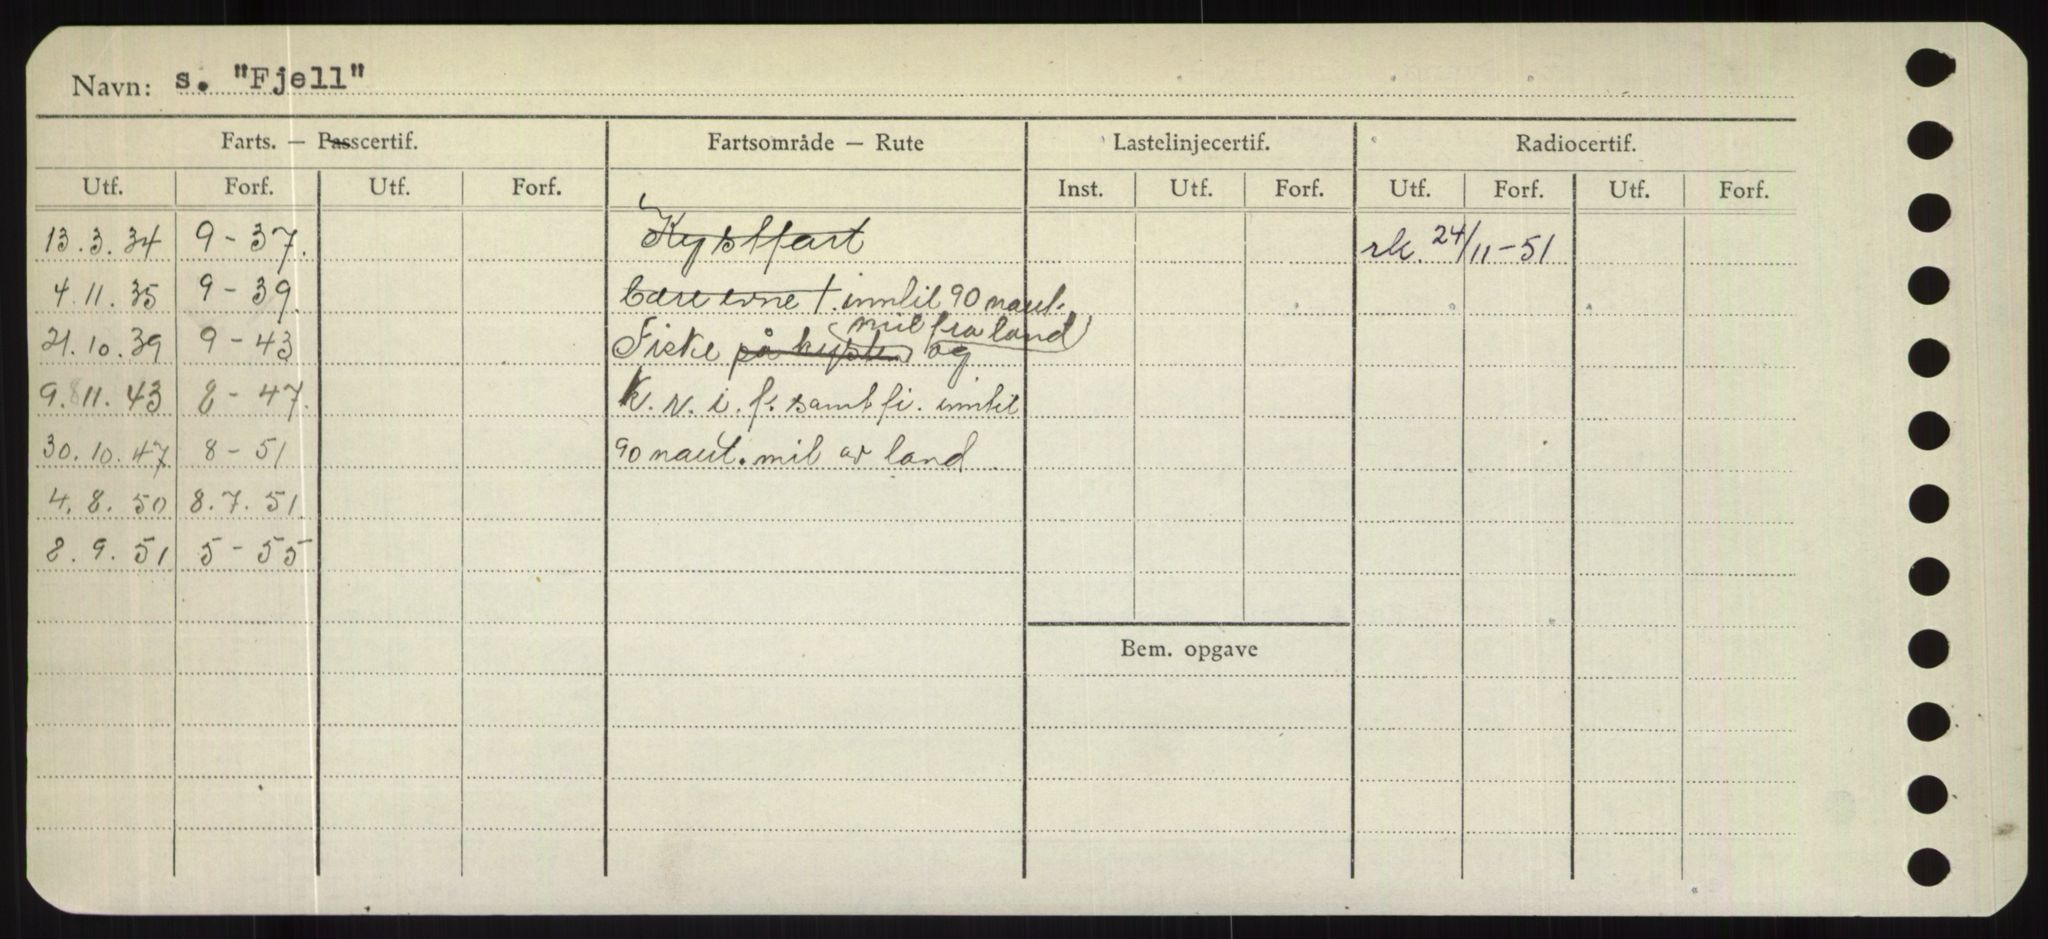 Navn: s. "Fjell"
Farts. — Passcertif. Fartsområde — Rute Lastelinjecertif. Radiocertif.
Utf. Forf. Utf. Forf. Inst. Utf. Forf. Utf. Forf. Utf. Forf.
13.3.34 9-37. Kystfart rk. 24/11-51
4.11.35 9-39. inntil 90 naut.
mil fra land
21.10.39 9-43 Fiske på kysten og
9.11.43 8-47. K. v. i. f. samt fi. inntil
30.10.47 8-51 90 naut. mil av land
4.8.50 8.7.51
8.9.51 5-55
Bem. opgave